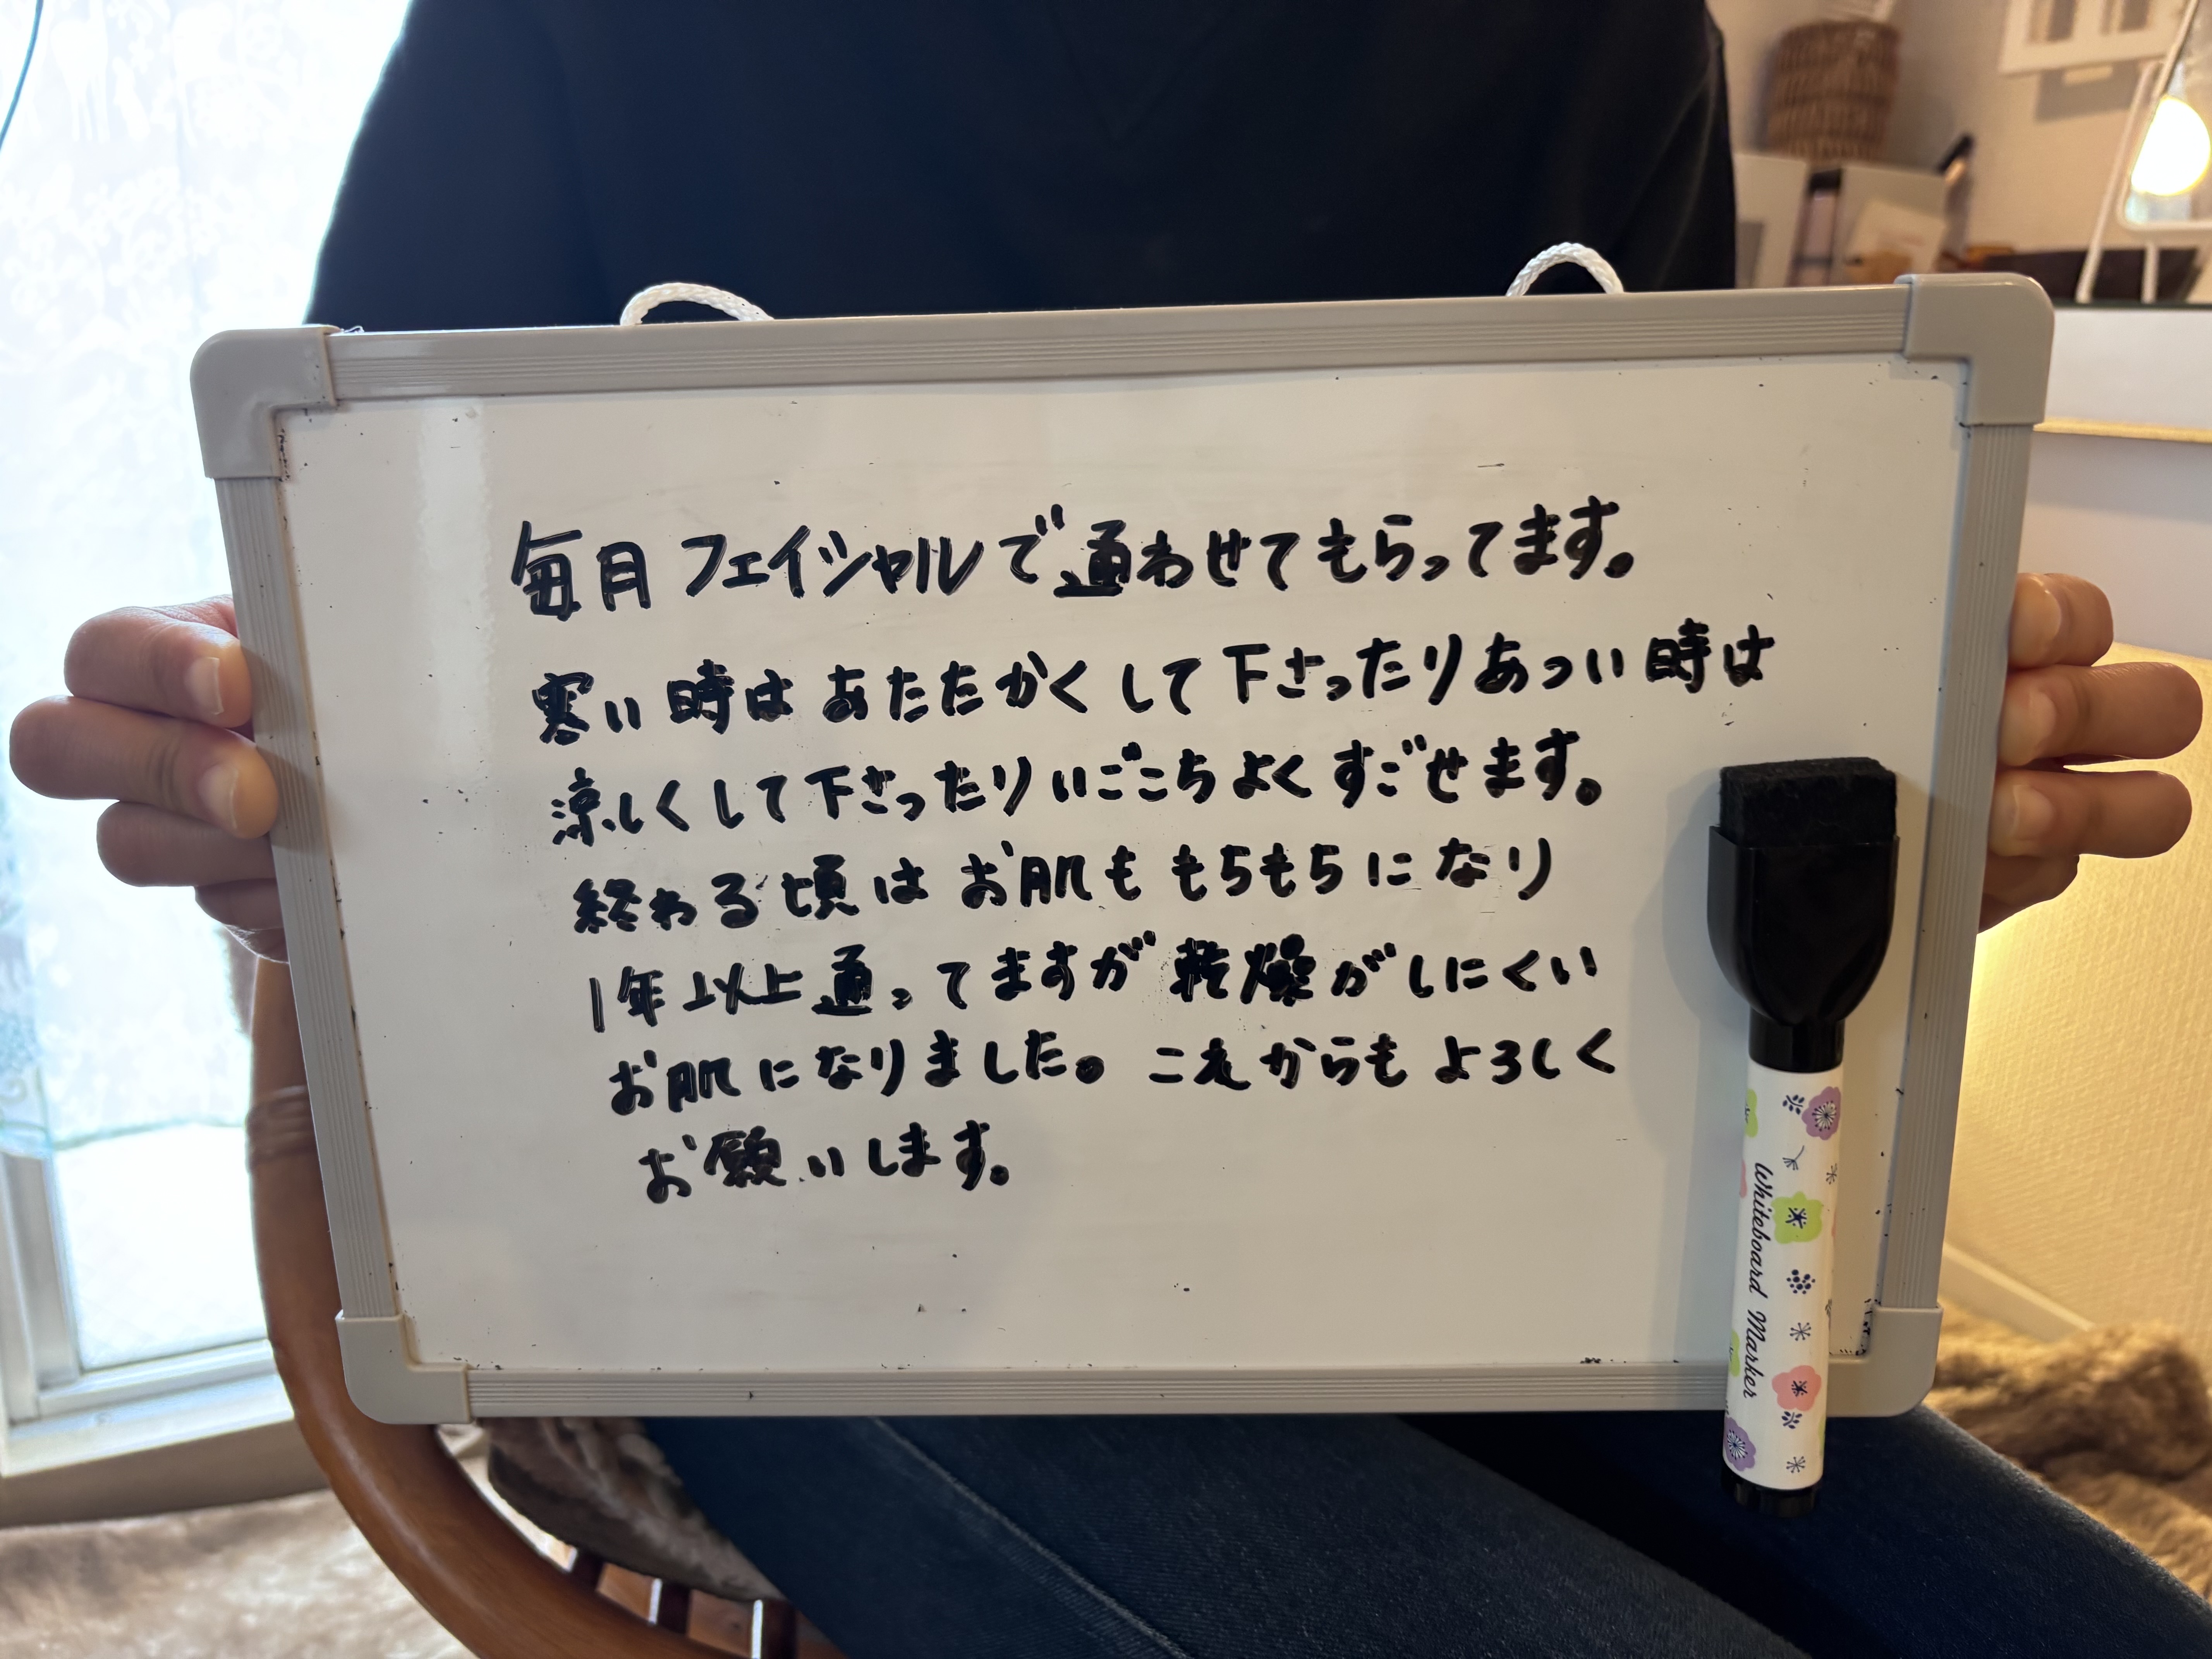 毎月フェイシャルで通わせてもらってます。
寒い時はあたたかくして下さったりあつい時は
涼しくして下さったりいごこちよくすごせます。
終わる頃はお肌ももちもちになり
1年以上通ってますが乾燥がしにくい
お肌になりました。これからもよろしく
お願いします。
Whiteboard Marker